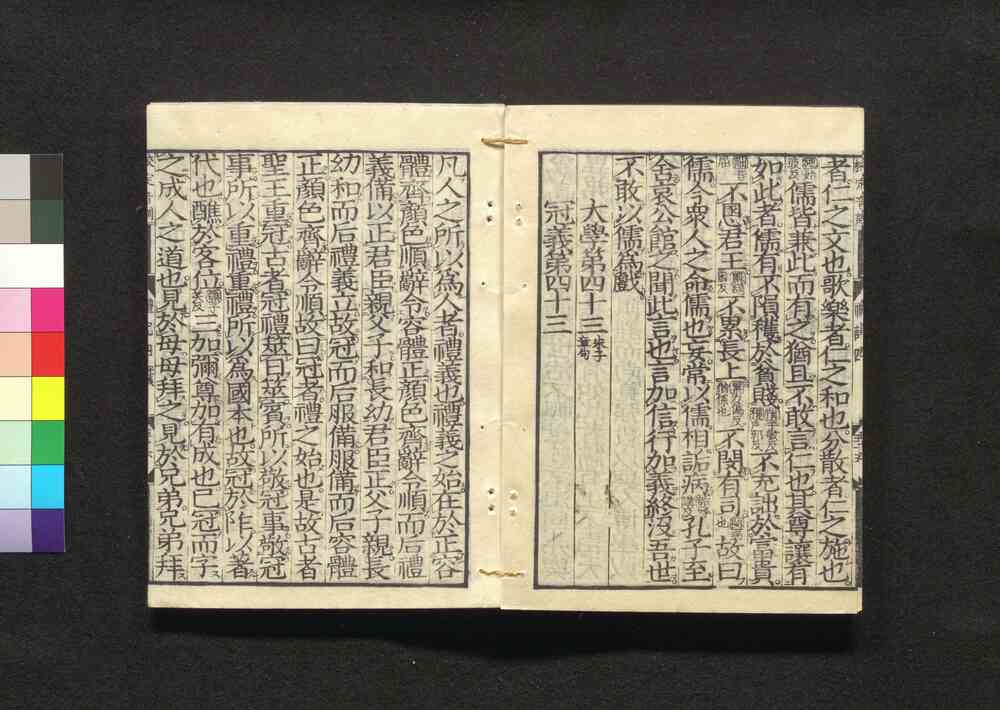 者仁之文也歌樂者仁之和也分散者仁之施也
儒皆兼此而有之猶且不敢言仁也其尊讓有
如此者儒有不隕穫於貧賤不充詘於富貴
不慁君王不累長上不閔有司故曰
儒今衆人之命儒也妄常以儒相詬病孔子至
舍哀公館之聞此言也言加信行加義終沒吾世
不敢以儒爲戲
大學第四十二 朱子章句
冠義第四十三
凡人之所以爲人者禮義也禮義之始在於正容
體齊顏色順辭令容體正顏色齊辭令順而后禮
義備以正君臣親父子和長幼君臣正父子親長
幼和而后禮義立故冠而后服備服備而后容體
正顏色齊辭令順故曰冠者禮之始也是故古者
聖王重冠古者冠禮筮日筮賓所以敬冠事敬冠
事所以重禮重禮所以爲國本也故冠於阼以著
代也醮於客位三加彌尊加有成也已冠而字
之成人之道也見於母母拜之見於兄弟兄弟拜